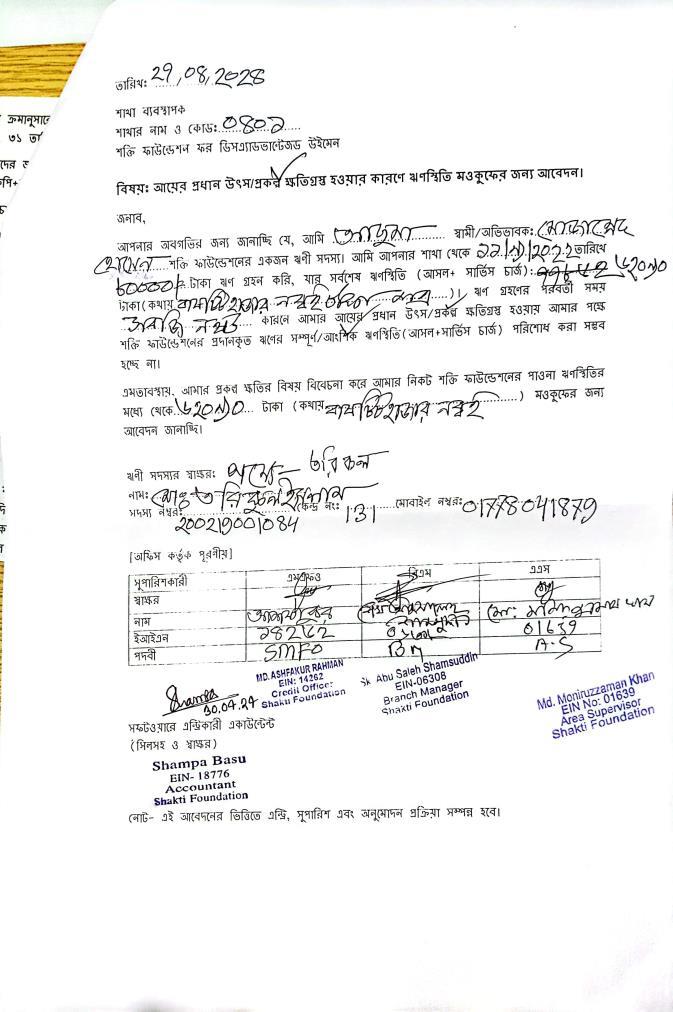 তারিখ: 29,08,2028
শাখা ব্যবস্থাপক
শাখার নাম ও কোড: ০৪০১
শক্তি ফাউন্ডেশন ফর ডিসএ্যাডভান্টেজড উইমেন
বিষয়: আয়ের প্রধান উৎস/প্রকল্প ক্ষতিগ্রস্থ হওয়ার কারণে ঋণস্থিতি মওকুফের জন্য আবেদন।
জনাব,
আপনার অবগতির জন্য জানাচ্ছি যে, আমি স্বামী/অভিভাবক:
হোসেন শক্তি ফাউন্ডেশনের একজন ঋণী সদস্য। আমি আপনার শাখা থেকে তারিখে
৮০০০০/= টাকা ঋণ গ্রহন করি, যার সর্বশেষ ঋণস্থিতি (আসল+ সার্ভিস চার্জ): ৬২০৯০
টাকা (কথায় )। ঋণ গ্রহণের পরবর্তী সময়
কারনে আমার আয়ের প্রধান উৎস/প্রকল্প ক্ষতিগ্রস্থ হওয়ায় আমার পক্ষে
শক্তি ফাউন্ডেশনের প্রদানকৃত ঋণের সম্পূর্ণ/আংশিক ঋণস্থিতি (আসল+সার্ভিস চার্জ) পরিশোধ করা সম্ভব
হচ্ছে না।
এমতাবস্থায়, আমার প্রকল্প ক্ষতির বিষয় বিবেচনা করে আমার নিকট শক্তি ফাউন্ডেশনের পাওনা ঋণস্থিতির
মধ্যে থেকে ৬২০৯০ টাকা (কথায় বাষট্টিহাজার নব্বই ) মওকুফের জন্য
আবেদন জানাচ্ছি।
ঋণী সদস্যর স্বাক্ষর: পক্ষে- তরিকুল
নাম: মোঃ তরিকুল ইসলাম
সদস্য নম্বর: কেন্দ্র নং: 131 মোবাইল নম্বর: 01778041879
200219001084
[অফিস কর্তৃক পূরণীয়]
সুপারিশকারী এমএফও বিএম এএস
স্বাক্ষর
নাম
ইআইএন 01639
পদবী SMFO BM A-S
MD. ASHFAKUR RAHMAN
EIN: 14262
Credit Officer
Shakti Foundation
Sk Abu Saleh Shamsuddin
EIN-06308
Branch Manager
Shakti Foundation
Md. Moniruzzaman Khan
EIN No: 01639
Area Supervisor
Shakti Foundation
সফটওয়ারে এন্ট্রিকারী একাউন্টেন্ট
(সিলসহ ও স্বাক্ষর)
Shampa Basu
EIN- 18776
Accountant
Shakti Foundation
নোট- এই আবেদনের ভিত্তিতে এন্ট্রি, সুপারিশ এবং অনুমোদন প্রক্রিয়া সম্পন্ন হবে।